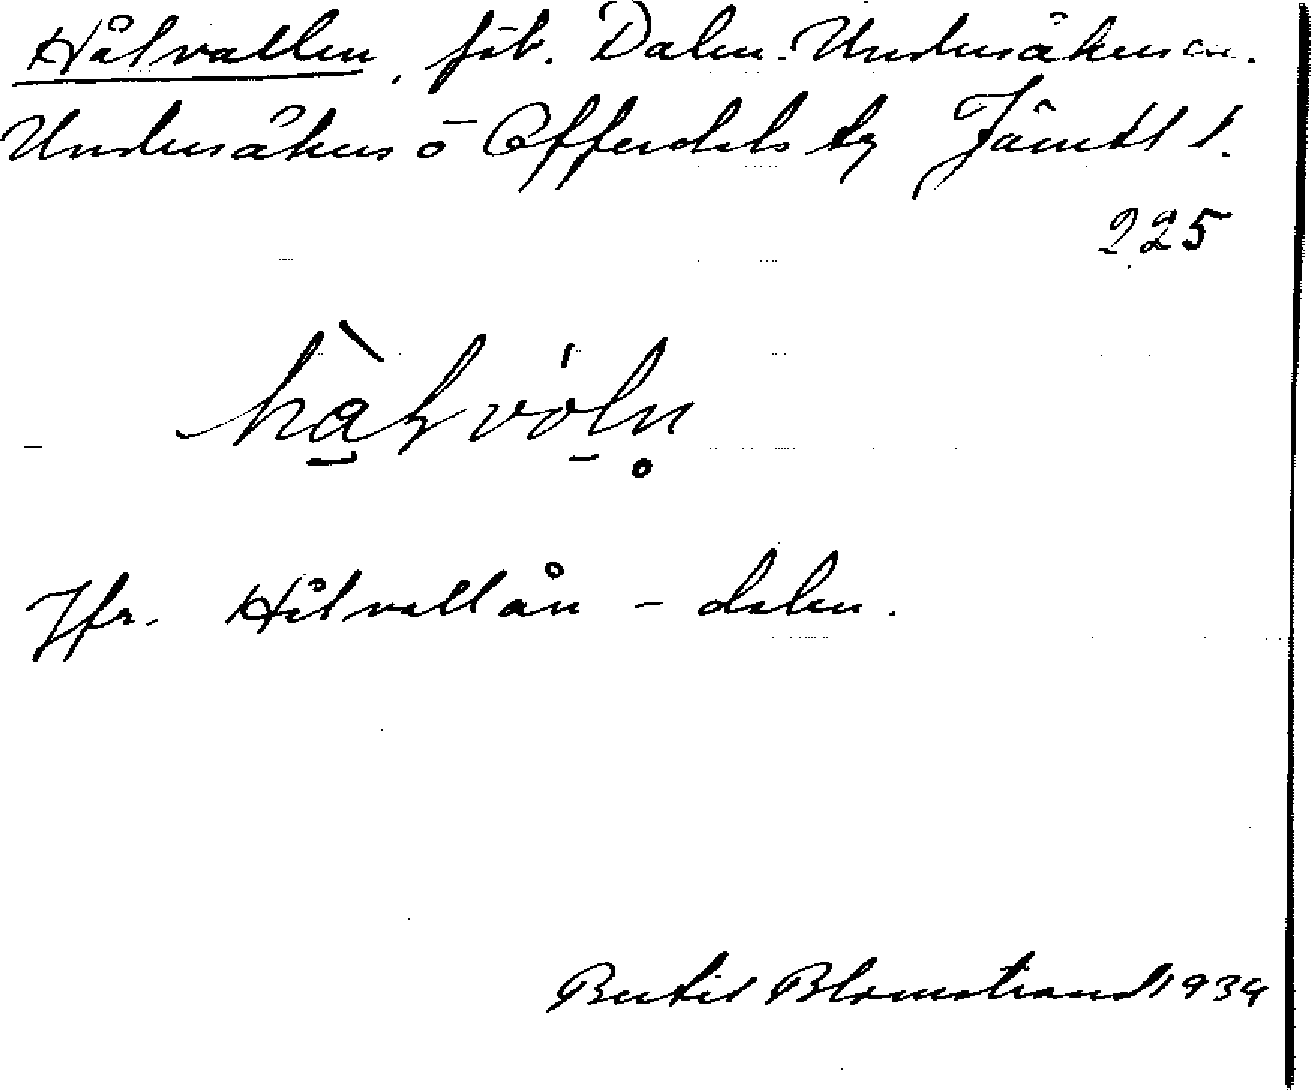 Hålvallen, fäb. Dalen. Undersåkers sn.
Undersåkers o Offerdals tg Jämtl l.
225
hålvöln
Jfr. Hålvallån - dalen.
Bertil Blomstrand 1934